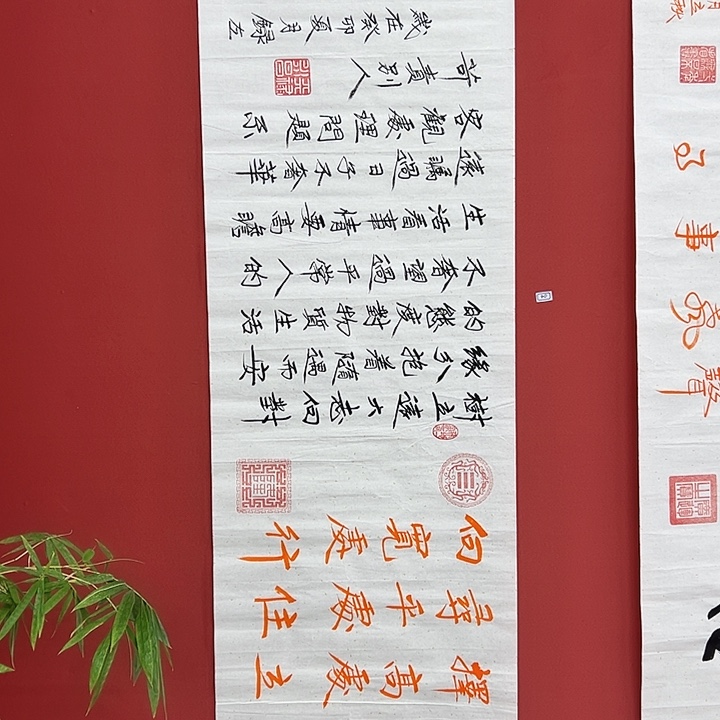 擇高處立
尋平處住
向寬處行
樹立遠大志向對
緣分抱着隨遇而安
的態度對物質生活
不奢望過平常人的
生活看事情要高瞻
遠矚過日子不奢華
客觀處理問題不
苛責別人
歲在癸卯夏月錄左
聲
事